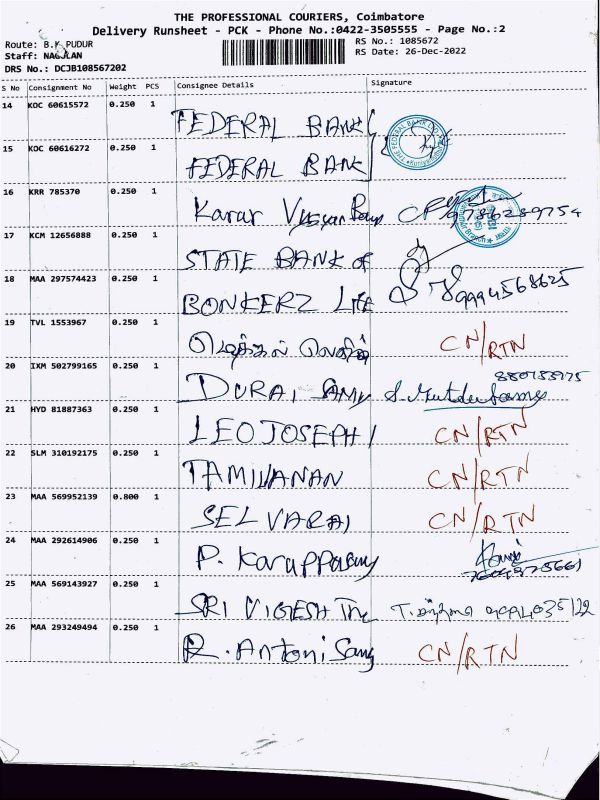 THE PROFESSIONAL COURIERS, Coimbatore
Delivery Runsheet - PCK - Phone No.:0422-3505555 - Page No.:2
Route: B.K PUDUR
RS No.: 1085672
Staff: NAGULAN
RS Date: 26-Dec-2022
DRS No.: DCJB108567202
S No Consignment No Weight PCS Consignee Details Signature
14 KOC 60615572 0.250 1 FEDERAL BANK
15 KOC 60616272 0.250 1 FEDERAL BANK
16 KRR 785370 0.250 1 Karur Vysya Bank 9786289754
17 KCM 12656888 0.250 1 STATE BANK OF
18 MAA 297574423 0.250 1 BONKERZ LIFE 9994568625
19 TVL 1553967 0.250 1 CN/RTN
20 IXM 502799165 0.250 1 DURAI SAMY
21 HYD 81887363 0.250 1 LEO JOSEPH CN/RTN
22 SLM 310192175 0.250 1 TAMILVANAN CN/RTN
23 MAA 569952139 0.800 1 SELVARAJ CN/RTN
24 MAA 292614906 0.250 1 P. Karuppasamy
25 MAA 569143927 0.250 1 SRI VIGESH
26 MAA 293249494 0.250 1 R. Antonisamy CN/RTN